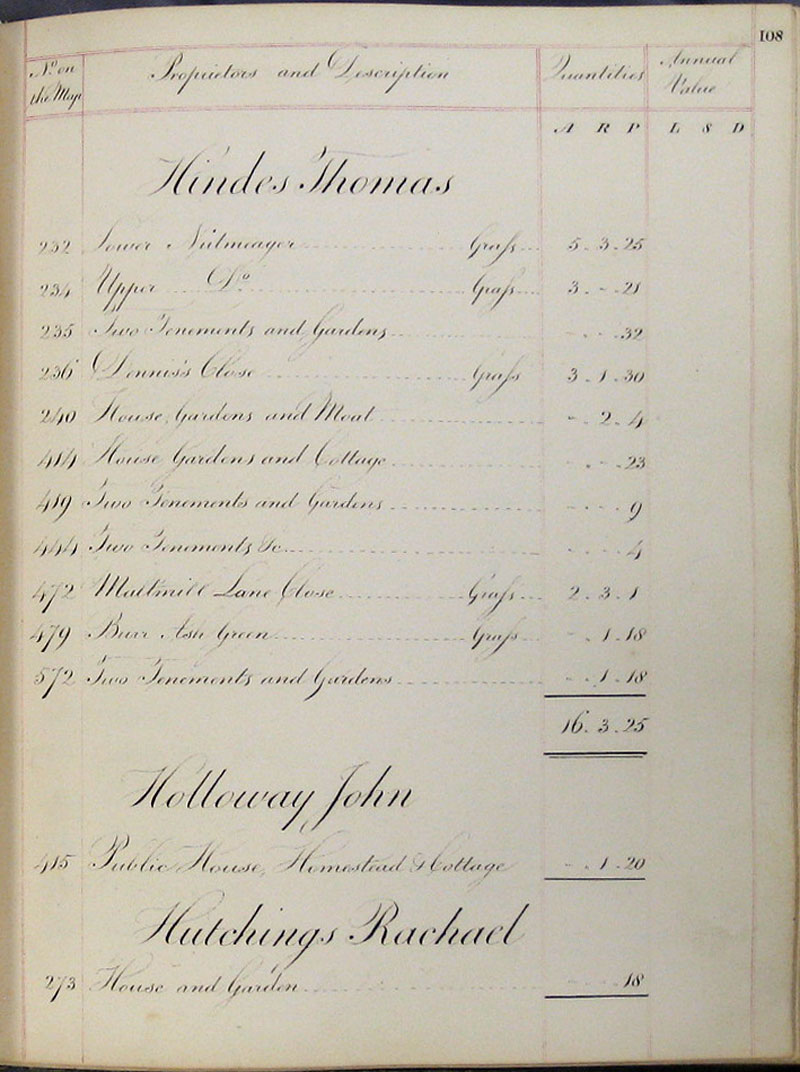 108
No. on the Map Proprietors and Description Quantities Annual Value
A R P L S D
Hindes Thomas
232 Lower Nutmeager Grass 5 . 3 . 25
234 Upper Do. Grass 3 . - . 21
235 Two Tenements and Gardens - . - . 32
236 Dennis's Close Grass 3 . 1 . 30
240 House, Gardens and Moat - . 2 . 4
414 House Gardens and Cottage - . - . 23
419 Two Tenements and Gardens - . - . 9
444 Two Tenements &c - . - . 4
472 Maltmill Lane Close Grass 2 . 3 . 1
479 Burr Ash Green Grass - . 1 . 18
572 Two Tenements and Gardens - . 1 . 18
16 . 3 . 25
Holloway John
415 Public House, Homestead & Cottage - . 1 . 20
Hutchings Rachael
273 House and Garden - . - . 18